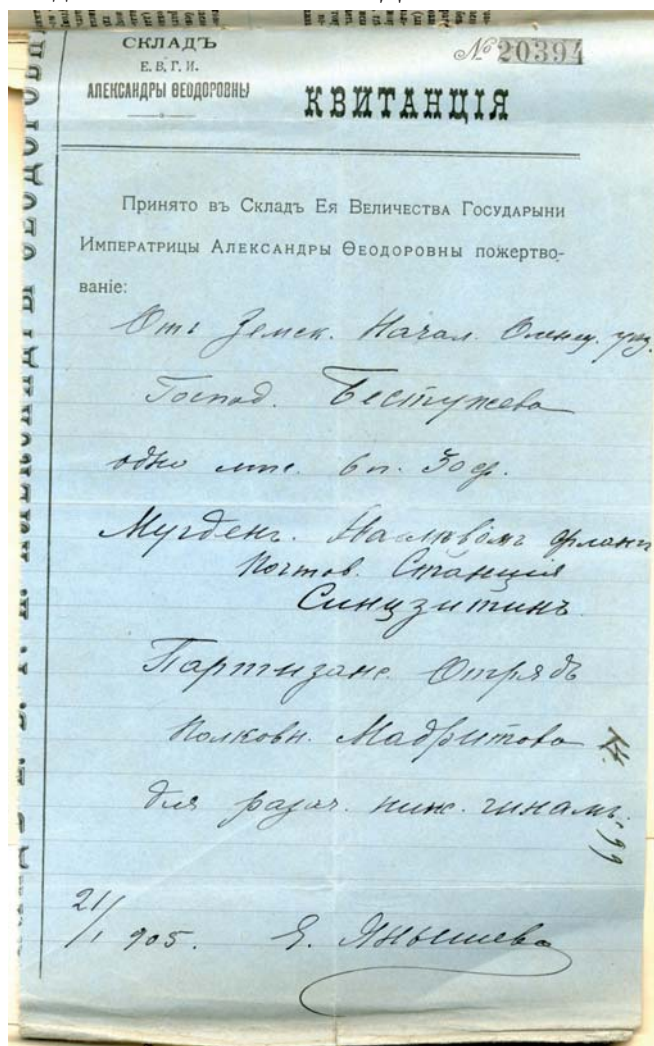 СКЛАДЪ
Е. В. Г. И.
АЛЕКСАНДРЫ ѲЕОДОРОВНЫ
№ 20394
КВИТАНЦІЯ
Принято въ Складъ Ея Величества Государыни
Императрицы Александры Ѳеодоровны пожертво-
ваніе:
Отъ Земск. Начал. Олонец. уѣз.
Господ. Бестужева
одно мѣс. 6 п. 30 ф.
Мугденъ. На лѣвомъ фланг
Почтов. Станція
Синцзитинъ
Партизанс. Отрядъ
Полковн. Мадритова
для разд. ниж. чинамъ.
21/1 905. Е. Янышева